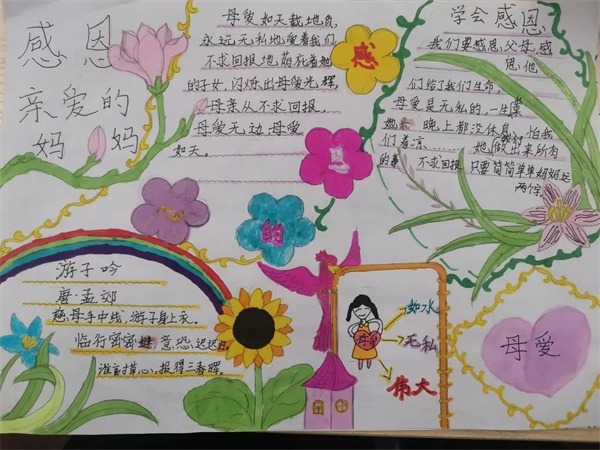 感恩
亲爱的
妈妈
母爱如天载地负
永远无私地爱着我们
不求回报地萌死着她
的子女，闪烁出母爱光辉，
母亲从不求回报，
母爱无边，母爱
如天。
感
的
学会感恩
我们要感恩父母，感
恩他
们给了我们生命，
母爱是无私的，一生
晚上都没休息，怕我
们着凉……她，做出来所有
的事，不求回报，只要简简单单
两个字
游子吟
唐·孟郊
慈母手中线，游子身上衣。
临行密密缝，意恐迟迟归。
谁言寸草心，报得三春晖。
母爱
如水
无私
伟大
母爱